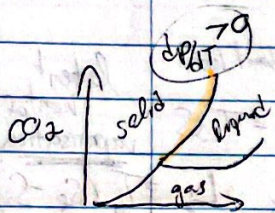 dP/dT >0
CO2
solid
liquid
gas